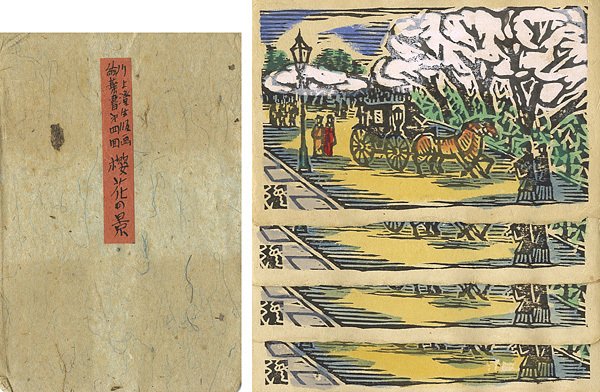 川上澄生版画
絵葉書才四回 桜花の景